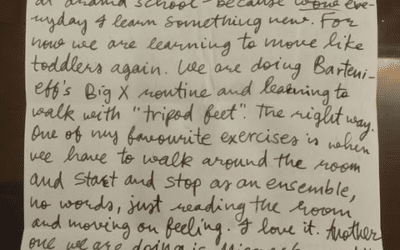 at drama school - because everyday
I learn something new. For
now we are learning to move like
toddlers again. We are doing Barteni-
eff's Big X routine and learning to
walk with "tripod feet". The right way.
One of my favourite exercises is when
we have to walk around the room
and start and stop as an ensemble,
no words, just reading the room
and moving on feeling. I love it. Another
one we are doing is